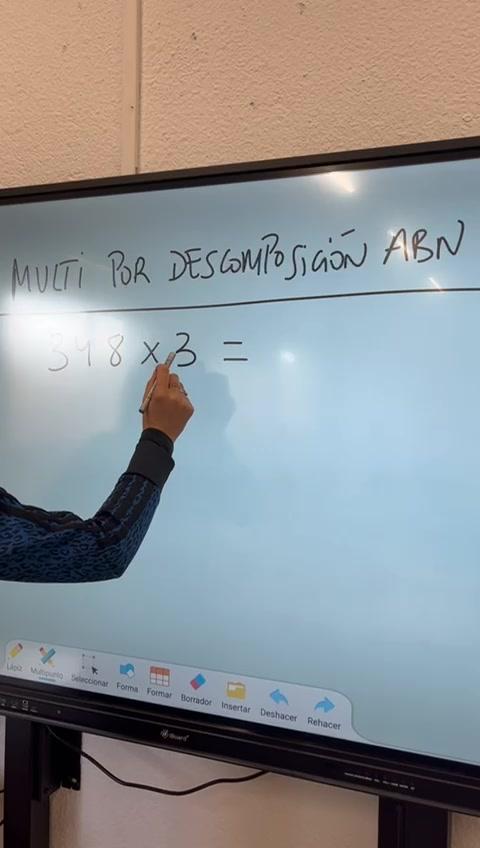 MULTI POR DESCOMPOSICIÓN ABN
348 x 3 =
Lápiz Multipunto Seleccionar Forma Formar Borrador Insertar Deshacer Rehacer
iBoard